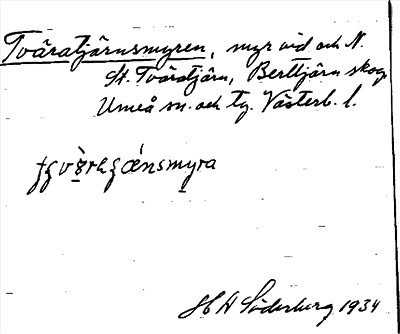 Tväratjärnsmyren, myr vid och N.
St. Tväratjärn, Berttjärn skog
Umeå sn. och tg. Västerb. l.
H A Söderberg 1934